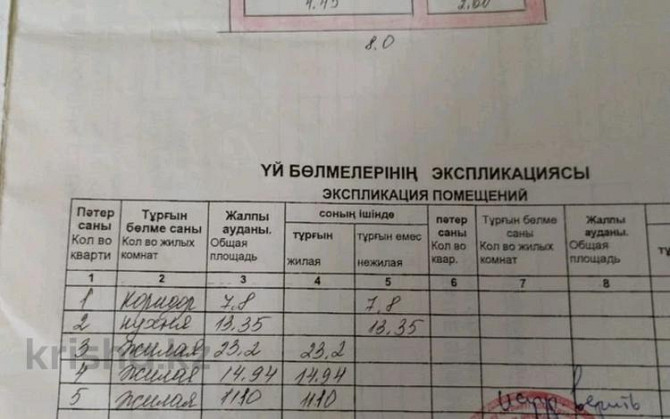 4.45 2.60
8.0
ҮЙ БӨЛМЕЛЕРІНІҢ ЭКСПЛИКАЦИЯСЫ
ЭКСПЛИКАЦИЯ ПОМЕЩЕНИЙ
Пәтер саны Кол во кварти
Тұрғын бөлме саны Кол во жилых комнат
Жалпы ауданы. Общая площадь
соның ішінде
тұрғын жилая
тұрғын емес нежилая
пәтер саны Кол во квар.
Тұрғын бөлме саны Кол во жилых комнат
Жалпы ауданы. Общая площадь
1 2 3 4 5 6 7 8
1 коридор 7,8 7,8
2 кухня 13.35 13.35
3 жилая 23,2 23,2
4 жилая 14.94 14.94
5 жилая 11.10 11.10
верить
krisha.kz